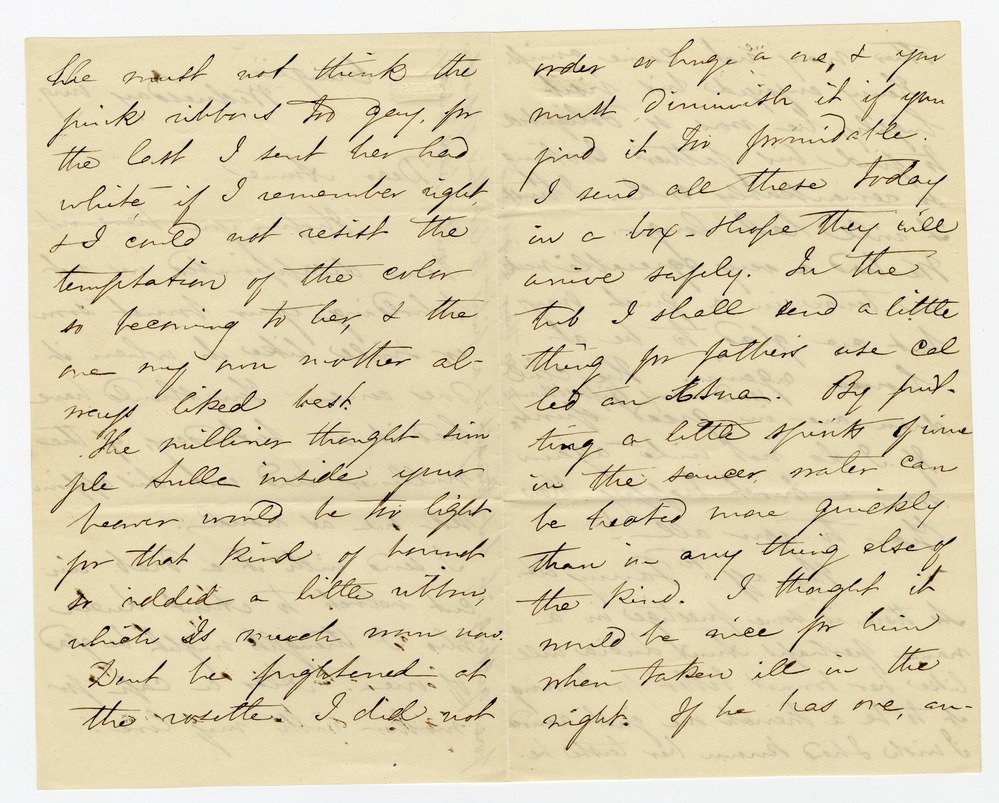 She must not think the
pink ribbons too gay, for
the last I sent her had
white if I remember right,
& I could not resist the
temptation of the color
so becoming to her, & the
one my own mother al-
ways liked best.
The milliner thought sim
ple tulle inside your
beaver would be too light
for that kind of bonnet
so added a little ribbon,
which is much worn now.
Dont be frightened at
the rosette. I did not
order so huge a one, & you
must diminish it if you
find it too formidable.
I send all these today
in a box - I hope they will
arrive safely. In the
tub I shall send a little
thing for father's use cal
led an Etna. By put-
ting a little spirits of wine
in the saucer, water can
be heated more quickly
than in any thing else of
the kind. I thought it
would be nice for him
when taken ill in the
night. If he has one, an-